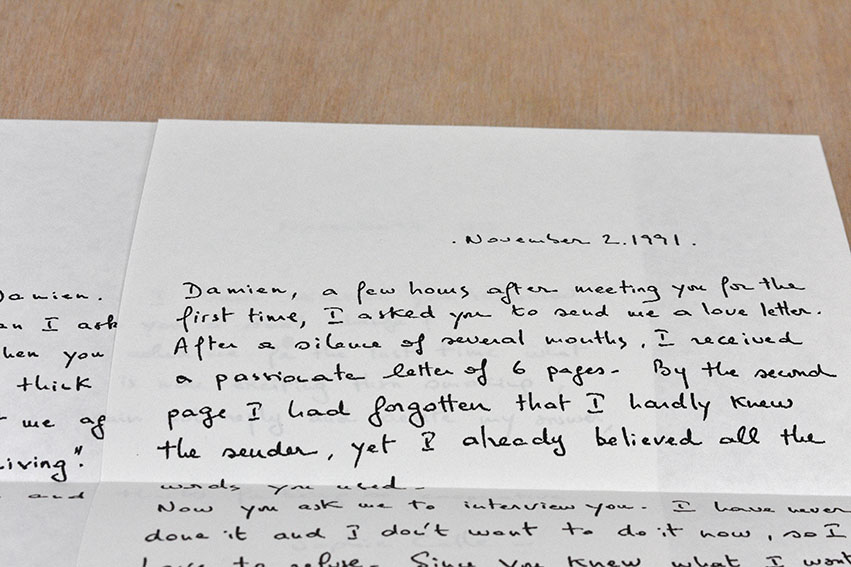 Damien.
I ask
hen you
thick
me ag
iving".
and
. November 2.1991.
Damien, a few hours after meeting you for the
first time, I asked you to send me a love letter.
After a silence of several months, I received
a passionate letter of 6 pages. By the second
page I had forgotten that I hardly knew
the sender, yet I already believed all the
words you used.
Now you ask me to interview you. I have never
done it and I don't want to do it now, so I
have to refuse. Since you knew what I want